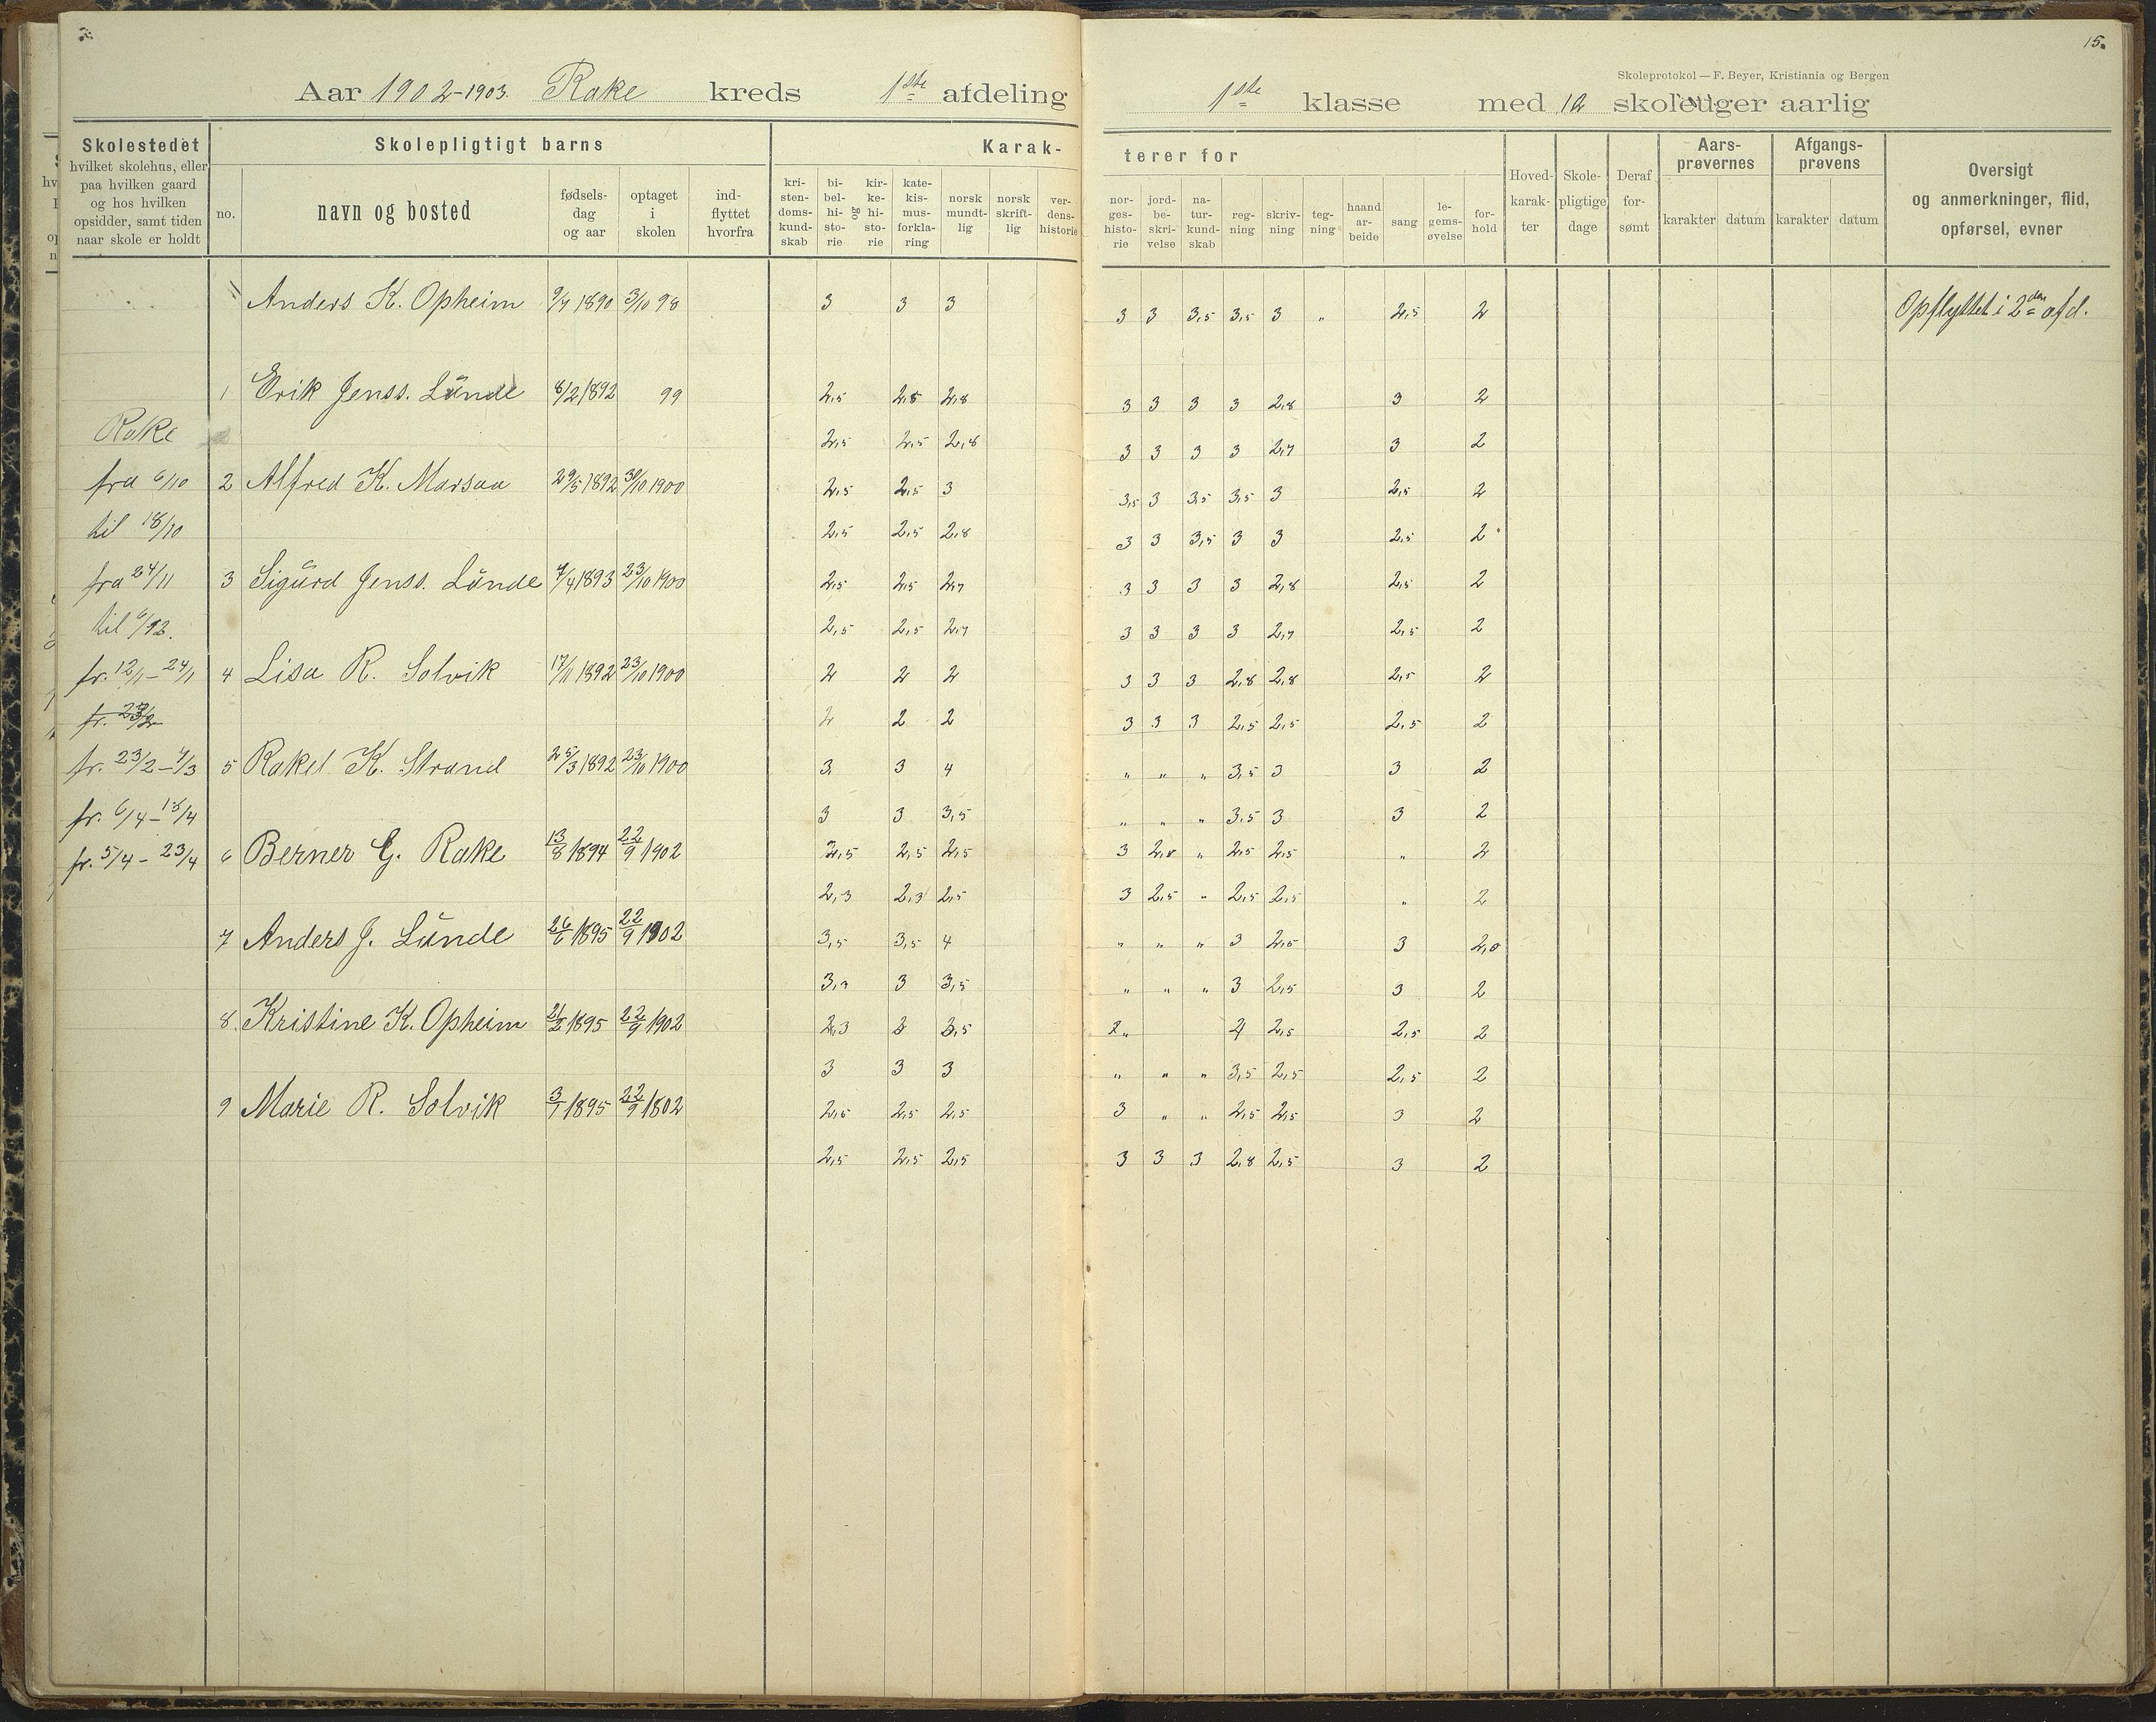 15.
Skoleprotokol — F. Beyer, Kristiania og Bergen
Aar 1902-1903. Rake kreds 1ste afdeling 1ste klasse med 12 skoleuger aarlig
Skolestedet
hvilket skolehus, eller
paa hvilken gaard
og hos hvilken
opsidder, samt tiden
naar skole er holdt
Skolepligtigt barns
no.
navn og bosted
fødsels-
dag
og aar
optaget
i
skolen
ind-
flyttet
hvorfra
Karak-
terer for
kri-
sten-
doms-
kund-
skab
bi-
bel-
hi-
sto-
rie
og
kir-
ke-
hi-
sto-
rie
kate-
kis-
mus-
forkla-
ring
norsk
mundt-
lig
norsk
skrift-
lig
ver-
dens-
historie
nor-
ges-
histo-
rie
jord-
be-
skri-
velse
na-
tur-
kund-
skab
reg-
ning
skriv-
ning
teg-
ning
haand
ar-
beide
sang
le-
gems-
øvelse
for-
hold
Hoved-
karak-
ter
Skole-
pligtige
dage
Deraf
for-
sømt
Aars-
prøvernes
karakter datum
Afgangs-
prøvens
karakter datum
Oversigt
og anmerkninger, flid,
opførsel, evner
Anders K. Opheim 9/7 1890 3/10 98 3 3 3 3 3 3,5 3,5 3 " 2,5 2 Opflyttet i 2den afd.
1 Erik Jenss. Lunde 8/2 1892 99 2,5 2,5 2,8 3 3 3 3 2,8 3 2
Rake 2,5 2,5 2,8 3 3 3 3 2,7 3 2
fra 6/10 2 Alfred K. Marsaa 29/5 1892 30/10 1900 2,5 2,5 3 3,5 3 3,5 3,5 3 2,5 2
til 18/10 2,5 2,5 2,8 3 3 3,5 3 3 2,5 2
fra 24/11 3 Sigurd Jenss. Lunde 4/4 1893 23/10 1900 2,5 2,5 2,7 3 3 3 3 2,8 2,5 2
til 6/12. 2,5 2,5 2,7 3 3 3 3 2,7 2,5 2
fr. 12/1 - 24/1 4 Lisa R. Solvik 17/11 1892 23/10 1900 2 2 2 3 3 3 2,8 2,8 2,5 2
fr. 23/2 2 2 2 3 3 3 2,5 2,5 2,5 2
fr. 23/2 - 7/3 5 Rakel K. Strand 25/3 1892 23/10 1900 3 3 4 " " " 3,5 3 3 2
fr. 6/4 - 18/4 3 3 3,5 " " " 3,5 3 3 2
fr. 5/4 - 23/4 6 Berner G. Rake 13/8 1894 22/9 1902 2,5 2,5 2,5 3 2,8 " 2,5 2,5 " 2
2,3 2,3 2,5 3 2,5 " 2,5 2,5 " 2
7 Anders J. Lunde 26/6 1895 22/9 1902 3,5 3,5 4 " " " 3 2,5 3 2,0
3,3 3 3,5 " " " 3 2,5 3 2
8. Kristine K. Opheim 21/2 1895 22/9 1902 2,3 3 3,5 " 4 2,5 2,5 2
3 3 3 " " " 3,5 2,5 2,5 2
9 Marie R. Solvik 3/1 1895 22/9 1802 2,5 2,5 2,5 3 " " 2,5 2,5 3 2
2,5 2,5 2,5 3 3 3 2,8 2,5 3 2